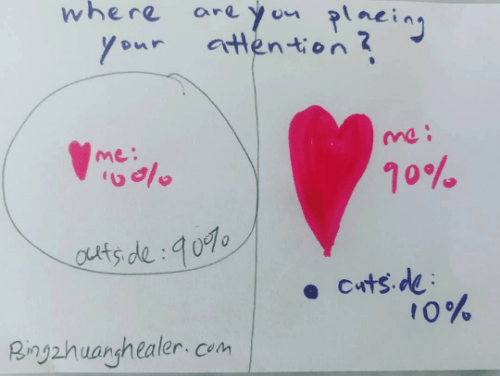 where are you placing
your attention?
me:
10%
outside: 90%
Bingzhuanghealer.com
me:
90%
outside:
10%